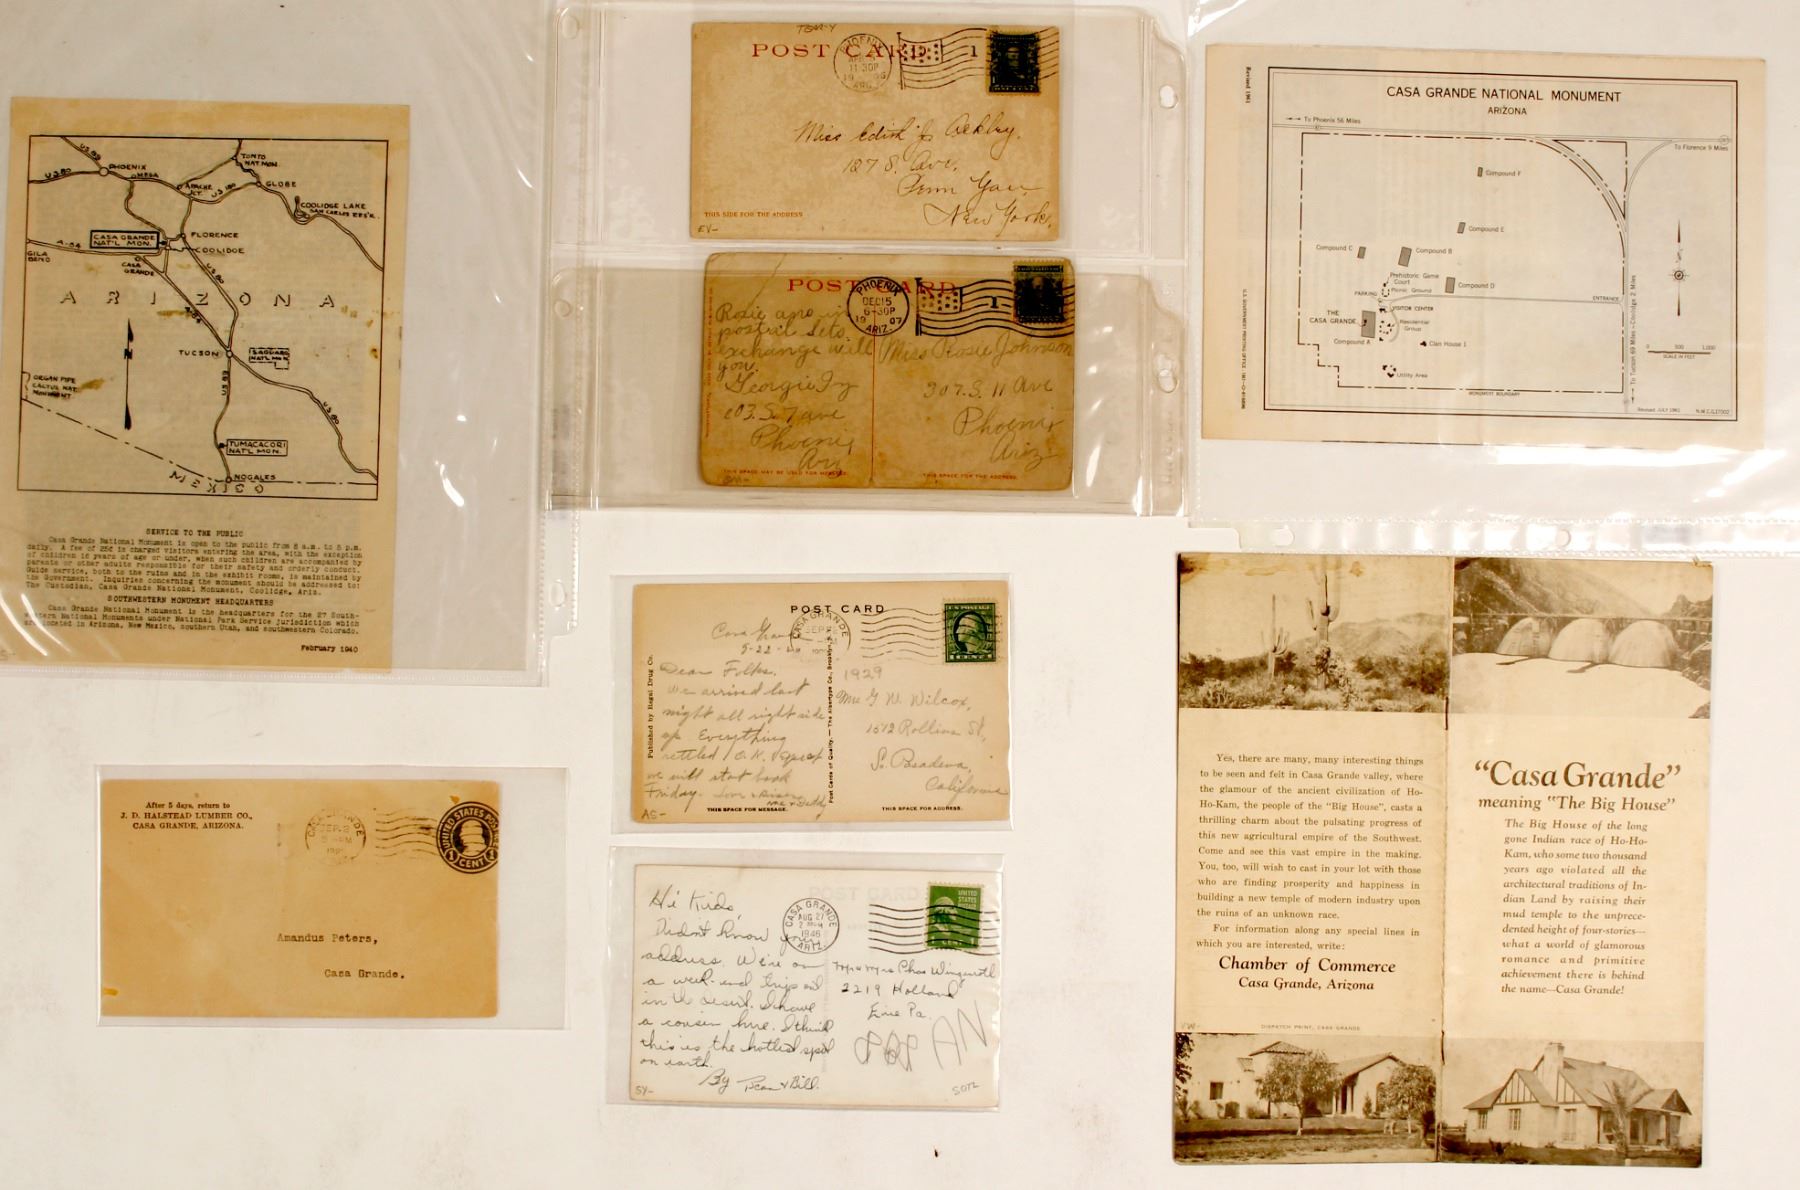 US 89
PHOENIX
MESA
US 80
TONTO
NAT. MON.
APACHE
JCT.
US 180
GLOBE
COOLIDGE LAKE
SAN CARLOS RES'R.
CASA GRANDE
NAT'L MON.
FLORENCE
COOLIDGE
A-84
GILA
BEND
CASA
GRANDE
US 80
ARIZONA
A-84
N
TUCSON
SAGUARO
NAT'L MON.
ORGAN PIPE
CACTUS NAT.
MONUMENT
US 89
US 80
TUMACACORI
NAT'L MON.
NOGALES
MEXICO
SERVICE TO THE PUBLIC
Casa Grande National Monument is open to the public from 8 a.m. to 5 p.m.
daily. A fee of 25¢ is charged visitors entering the area, with the exception
of children 16 years of age or under, when such children are accompanied by
parents or other adults responsible for their safety and orderly conduct.
Guide service, both to the ruins and in the exhibit rooms, is maintained by
the Government. Inquiries concerning the monument should be addressed to:
The Custodian, Casa Grande National Monument, Coolidge, Ariz.
SOUTHWESTERN MONUMENT HEADQUARTERS
Casa Grande National Monument is the headquarters for the 27 South-
western National Monuments under National Park Service jurisdiction which
are located in Arizona, New Mexico, southern Utah, and southwestern Colorado.
February 1940
POST CARD
PHOENIX
11-30P
ARIZ.
1
Miss Edith J. Ackley.
127 S. Ave.
Penn Yan
New York.
THIS SIDE FOR THE ADDRESS
EY-
POST CARD
PHOENIX
DEC 15
6-30P
1907
ARIZ.
1
Rosie
postal sets.
exchange will
you.
Georgie
603. S. 7 ave
Phoenix
Ari
Miss Rosie Johnson
307. S. 11 Ave
Phoenix
Ariz
THIS SPACE MAY BE USED FOR MESSAGE.
THIS SPACE FOR THE ADDRESS.
Revised 1961
CASA GRANDE NATIONAL MONUMENT
ARIZONA
To Phoenix 56 Miles
To Florence 9 Miles
Compound F
Compound E
Compound C
Compound B
Prehistoric Game
Court
Picnic Ground
Compound D
PARKING
ENTRANCE
VISITOR CENTER
THE
CASA GRANDE
Residential
Group
Compound A
Clan House 1
Utility Area
MONUMENT BOUNDARY
To Tucson 69 Miles—Coolidge 2 Miles
0 500 1,000
SCALE IN FEET
Revised JULY 1961
POST CARD
CASA GRANDE
SEP
U.S. POSTAGE
1 CENT 1
Casa Grande
9-22-29
Dear Folks.
We arrived last
night all right side
up. Everything
settled O.K. Expect
we will start back
Friday.
1929
G. W. Wilcox,
1512 Rollins St,
So. Pasadena,
California
Published by Regal Drug Co.
Post Cards of Quality. — The Albertype Co., Brooklyn
THIS SPACE FOR MESSAGE.
THIS SPACE FOR ADDRESS.
AS-
After 5 days, return to
J. D. HALSTEAD LUMBER CO.,
CASA GRANDE, ARIZONA.
CASA GRANDE
SEP 2
UNITED STATES POSTAGE
1 CENT 1
Amandus Peters,
Casa Grande.
POST CARD
CASA GRANDE
AUG 27
1946
ARIZ.
UNITED
STATES
POSTAGE
1 CENT
Hi Kids,
Didn't know your
address. We're on
a week-end trip out
in the desert. I have
a cousin here. I think
this is the hottest spot
on earth.
By Jean & Bill.
Mr & Mrs Chas
2219 Holland
Erie Pa.
SY-
Yes, there are many, many interesting things
to be seen and felt in Casa Grande valley, where
the glamour of the ancient civilization of Ho-
Ho-Kam, the people of the "Big House", casts a
thrilling charm about the pulsating progress of
this new agricultural empire of the Southwest.
Come and see this vast empire in the making.
You, too, will wish to cast in your lot with those
who are finding prosperity and happiness in
building a new temple of modern industry upon
the ruins of an unknown race.
For information along any special lines in
which you are interested, write:
Chamber of Commerce
Casa Grande, Arizona
DISPATCH PRINT, CASA GRANDE
"Casa Grande"
meaning "The Big House"
The Big House of the long
gone Indian race of Ho-Ho-
Kam, who some two thousand
years ago violated all the
architectural traditions of In-
dian Land by raising their
mud temple to the unprece-
dented height of four-stories—
what a world of glamorous
romance and primitive
achievement there is behind
the name—Casa Grande!